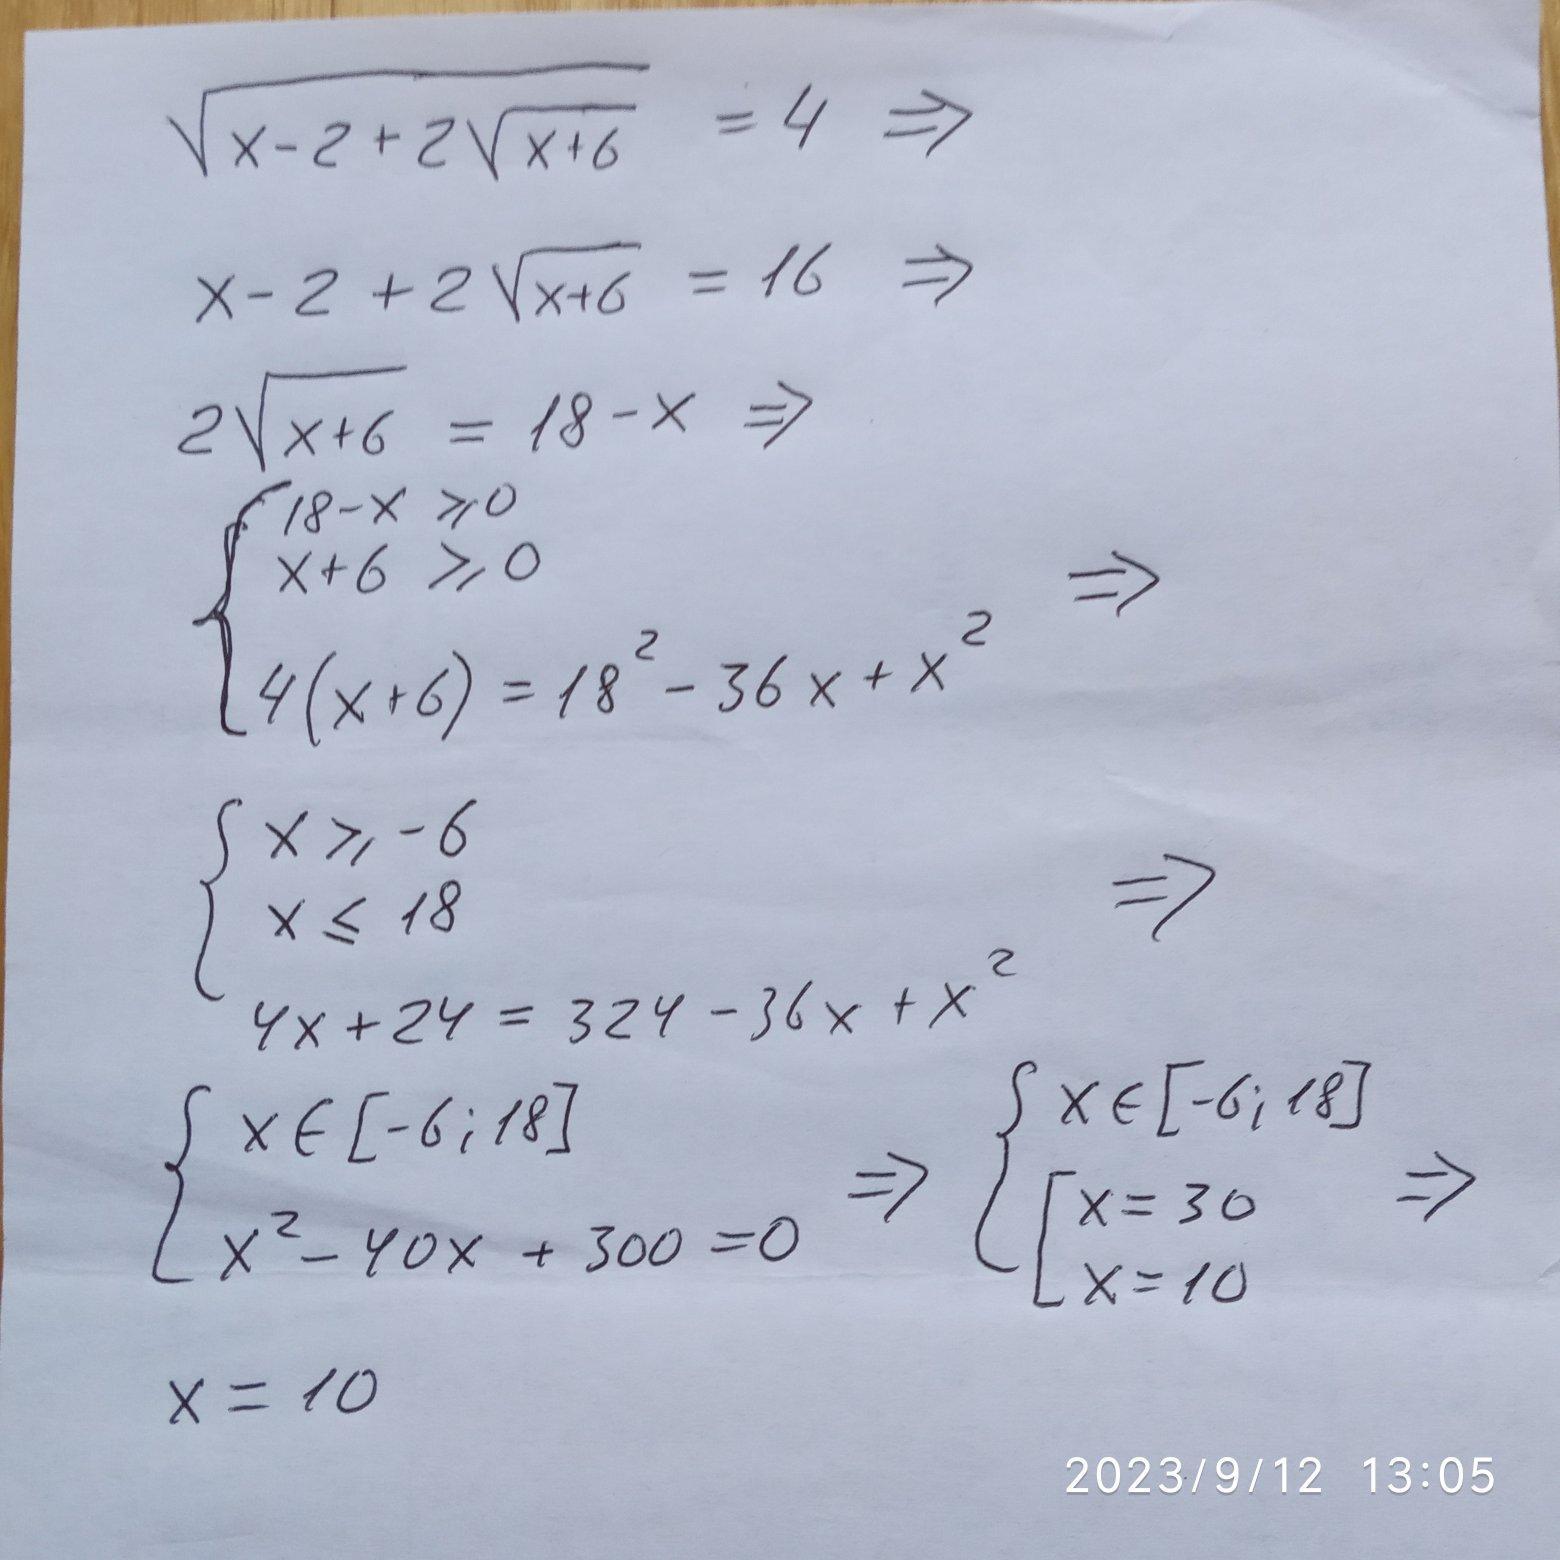 √(x-2+2√(x+6)) = 4 ⇒
x-2+2√(x+6) = 16 ⇒
2√(x+6) = 18-x ⇒
{ 18-x ⩾ 0
x+6 ⩾ 0 ⇒
4(x+6) = 18² - 36x + x²
{ x ⩾ -6
x ≤ 18 ⇒
4x+24 = 324 - 36x + x²
{ x ∈ [-6; 18]
x² - 40x + 300 = 0 ⇒
{ x ∈ [-6; 18]
[ x = 30 ⇒
x = 10
x = 10
2023/9/12 13:05